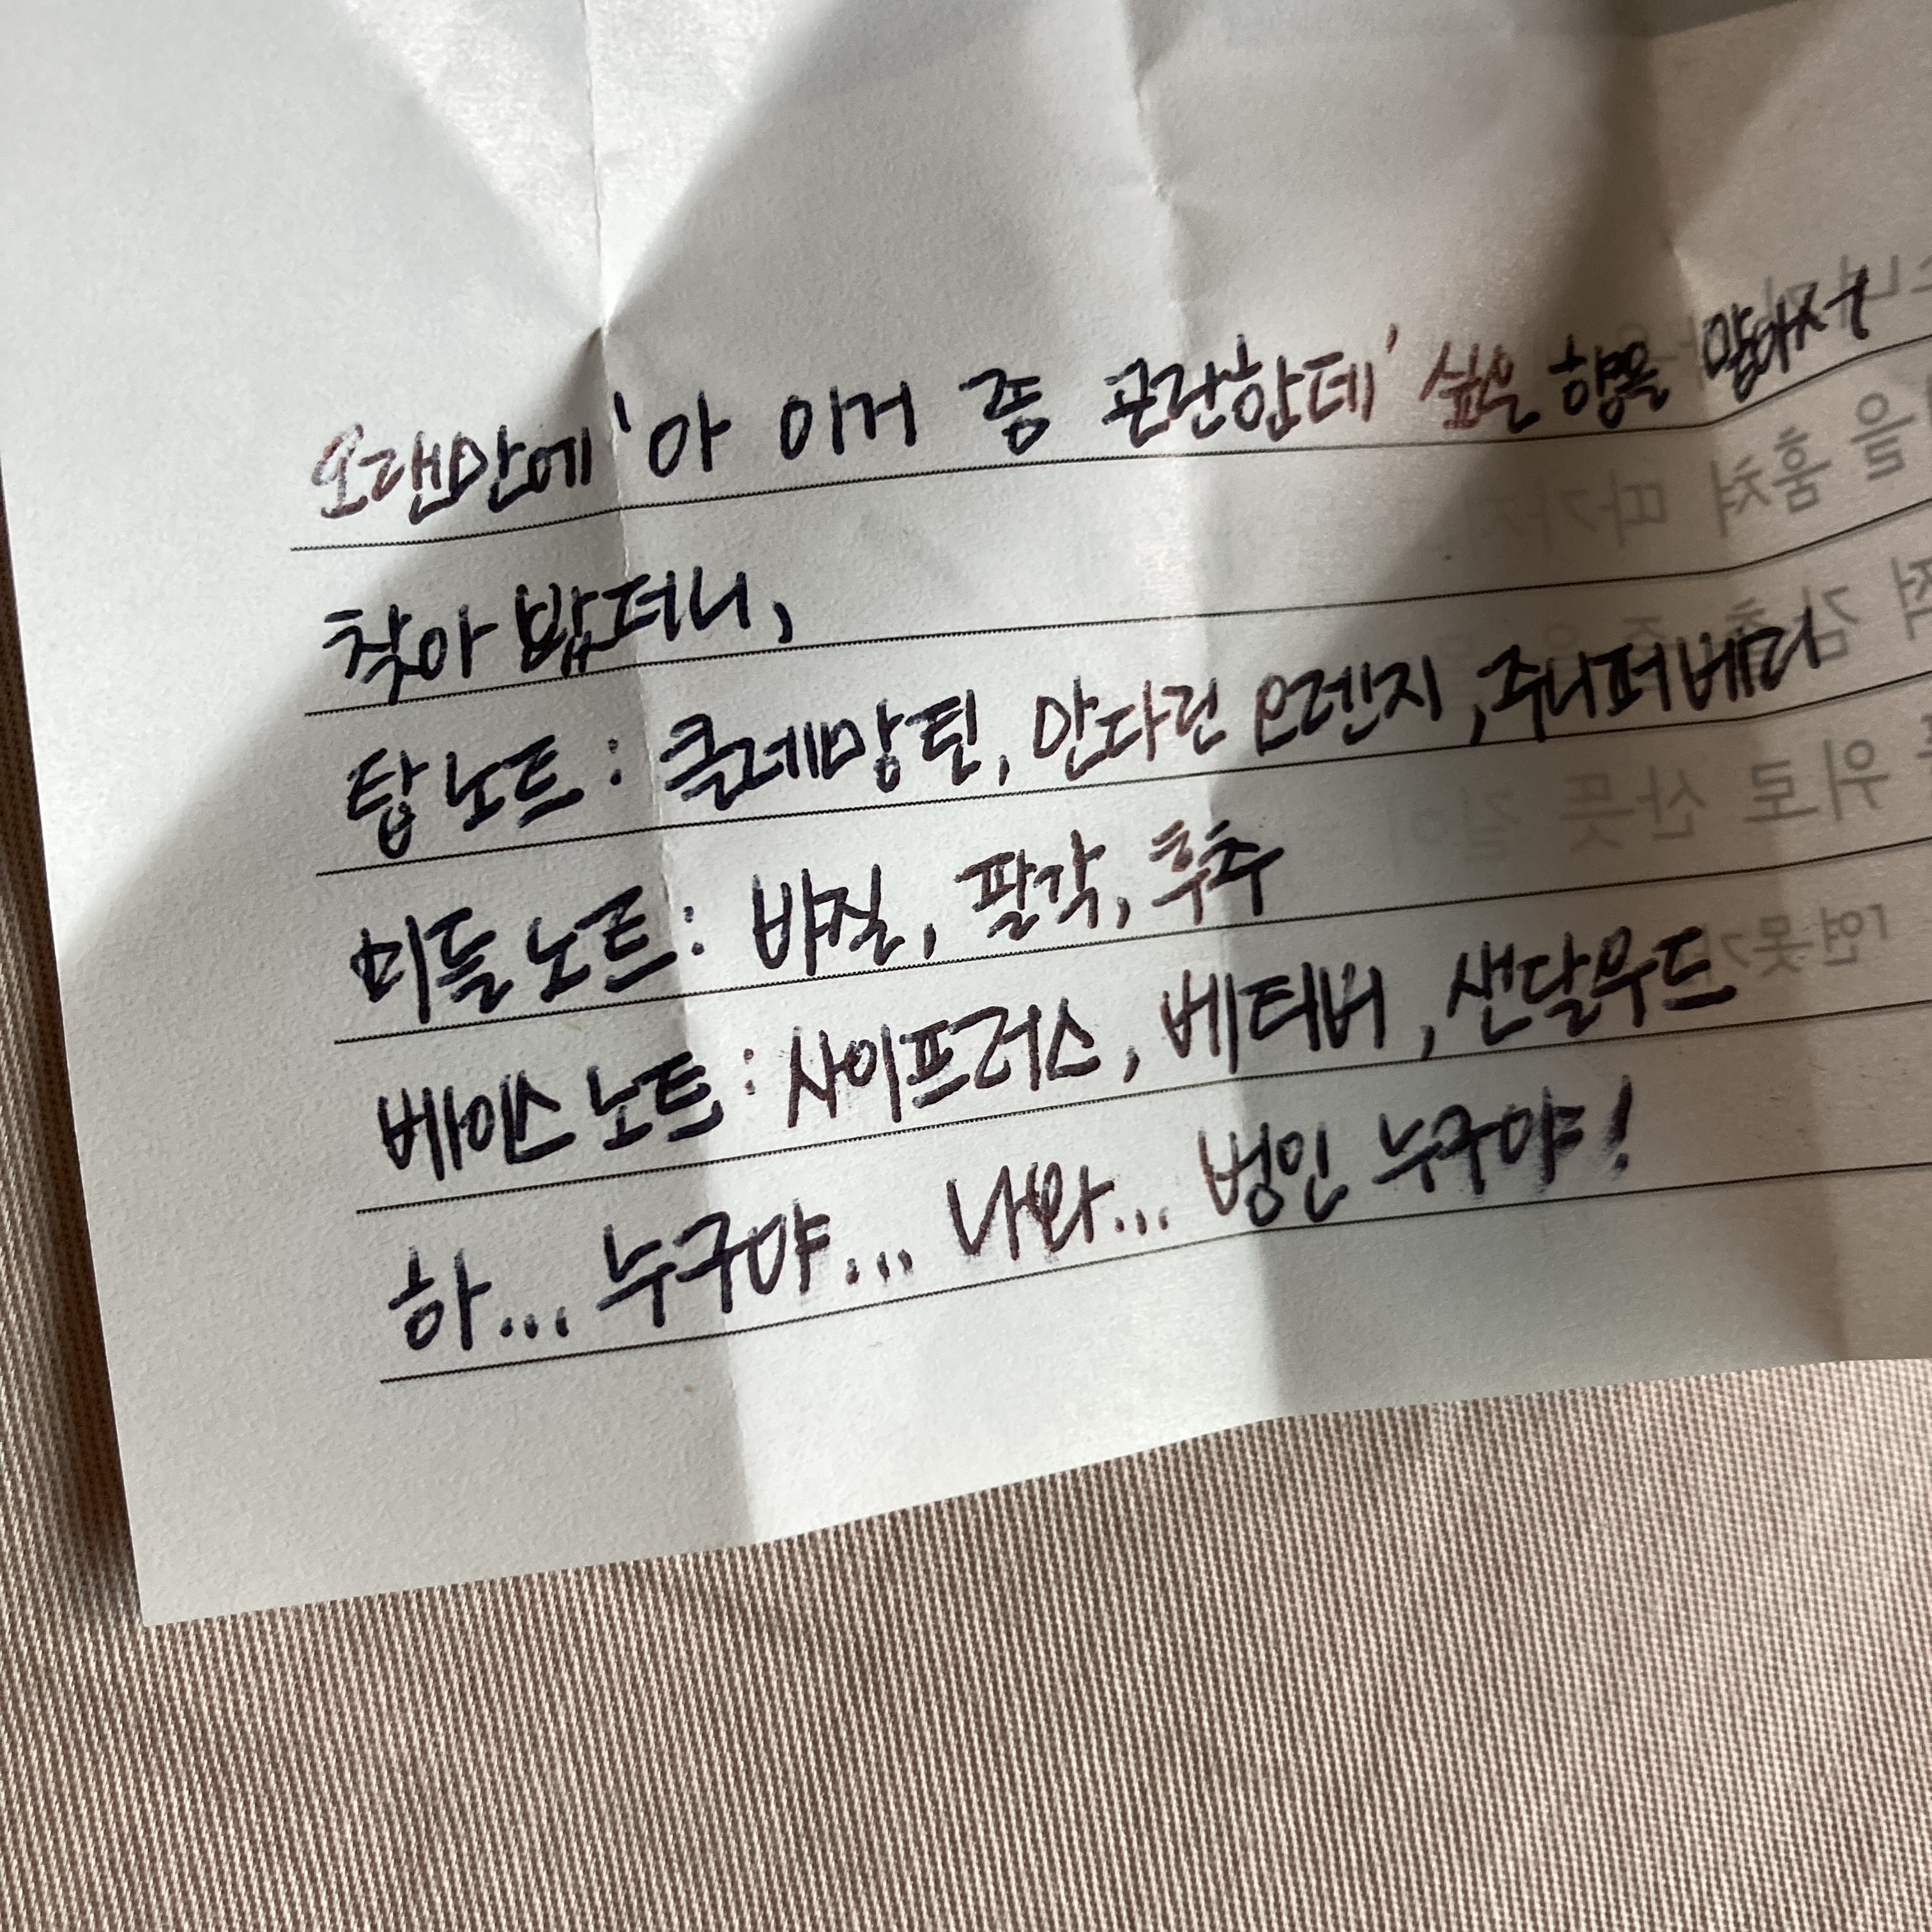 오랜만에 '아 이거 좀 곤란한데' 싶은 향을 맡아서
찾아 봤더니,
탑 노트 : 클레망틴, 만다린 오렌지, 주니퍼베리
미들 노트 : 바질, 팔각, 후추
베이스 노트 : 사이프러스, 베티버, 샌달우드
하... 누구야... 나와... 범인 누구야!